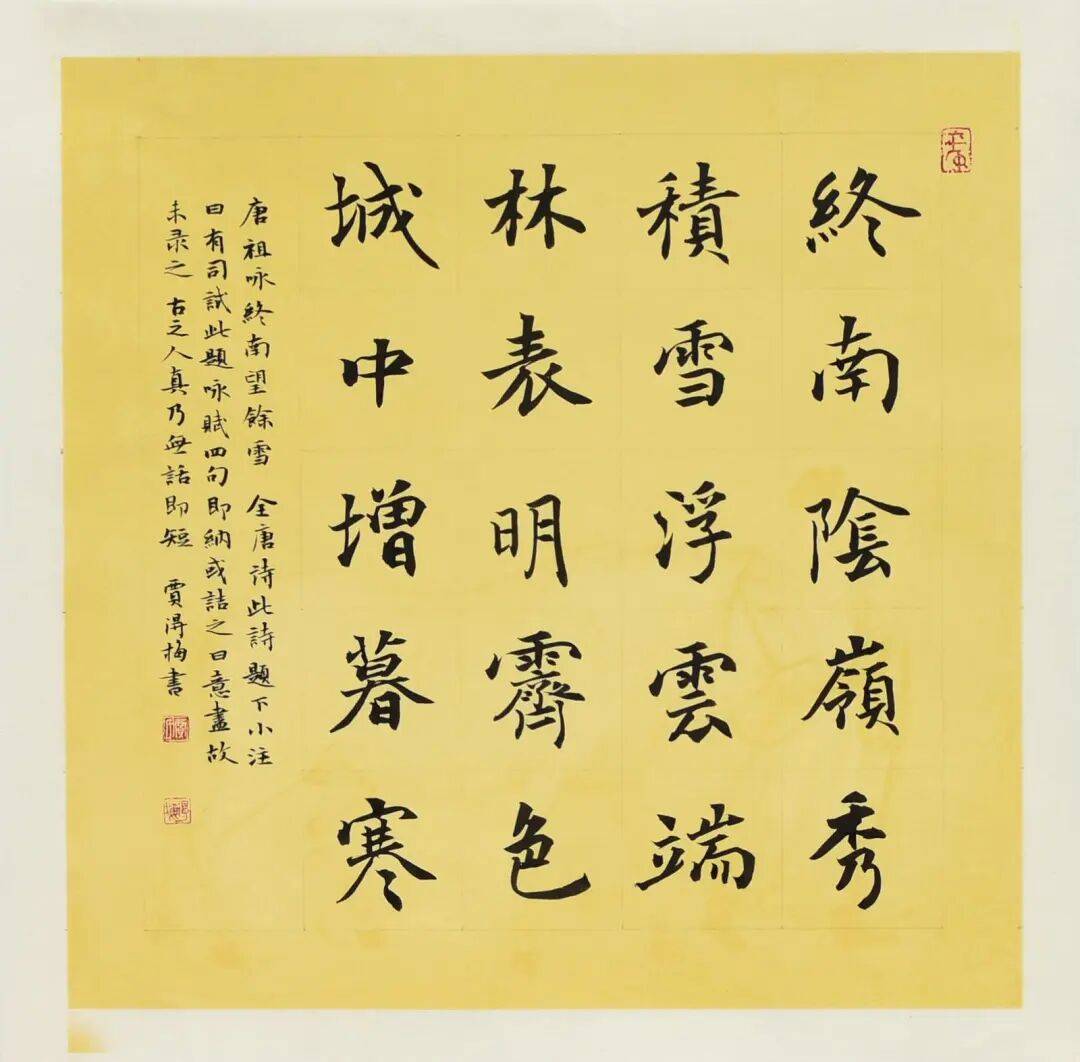 終南陰嶺秀
積雪浮雲端
林表明霽色
城中增暮寒
唐祖咏終南望餘雪 全唐诗此詩題下小注
曰有司試此題咏賦四句即納或詰之曰意盡故
未录之 古之人真乃無話即短 賈得梅書